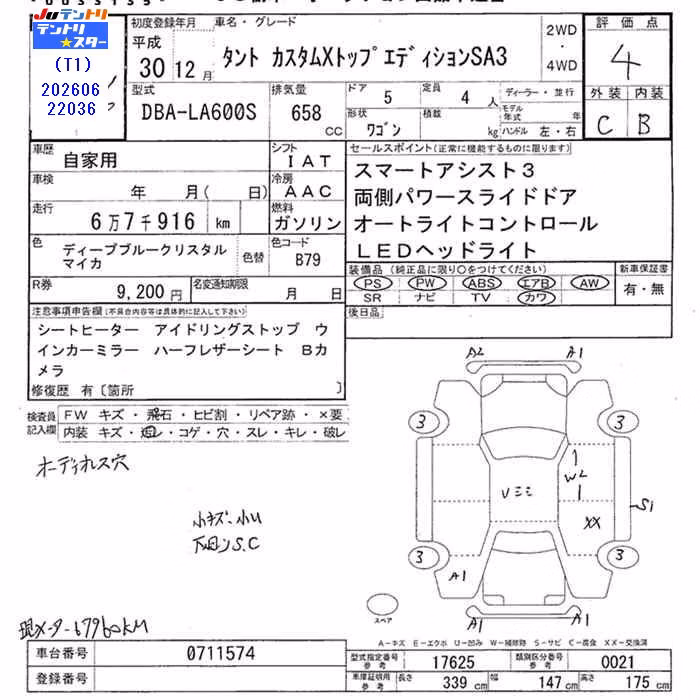 Juテントリ
テントリ★スター
(T1)
202606
22036
初度登録年月 車名・グレード
平成 30 12月
タント カスタムXトップエディションSA3
2WD・4WD
評価点
4
外装 内装
C B
型式 DBA-LA600S
排気量 658 CC
ドア 5
定員 4 人
ディーラー・並行
形状 ワゴン
積載 kg
モデル年式 年
ハンドル 左・右
車歴 自家用
シフト IAT
車検 年 月( 日)
冷房 AAC
走行 6万7千916 km
燃料 ガソリン
色 ディープブルークリスタルマイカ
色替
色コード B79
R券 9,200円
名変通知期限 月 日
セールスポイント(正常に機能するものに限ります)
スマートアシスト3
両側パワースライドドア
オートライトコントロール
LEDヘッドライト
装備品(純正品に限り○をつけてください)
PS PW ABS エアB AW
SR ナビ TV カワ
新車保証書
有・無
後日品
注意事項申告欄(不具合内容等は具体的に記入して下さい)
シートヒーター アイドリングストップ ウ
インカーミラー ハーフレザーシート Bカ
メラ
修復歴 有〔箇所 〕
検査員記入欄
FW キズ・飛石・ヒビ割・リペア跡・×要
内装 キズ・汚レ・コゲ・穴・スレ・キレ・破レ
オーディオレス穴
小キズ・小U
下回りS.C
現メーター67960KM
A2 A1
3 3
W2
Uミミ
S1
XX
3 3
A1
A1 A1
スペア
A-キズ E-エクボ U-凹み W-補修跡 S-サビ C-腐食 XX-交換済
車台番号 0711574
登録番号
型式指定番号 参考 17625
類別区分番号 参考 0021
車庫証明用 参考 長さ 339 cm 幅 147 cm 高さ 175 cm